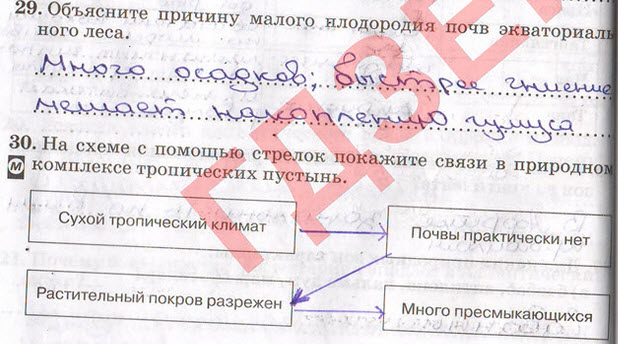 29. Объясните причину малого плодородия почв экваториаль
ного леса.
Много осадков; быстрое гниение
мешает накоплению гумуса
30. На схеме с помощью стрелок покажите связи в природном
М комплексе тропических пустынь.
Сухой тропический климат
Почвы практически нет
Растительный покров разрежен
Много пресмыкающихся
ГДЗЕ